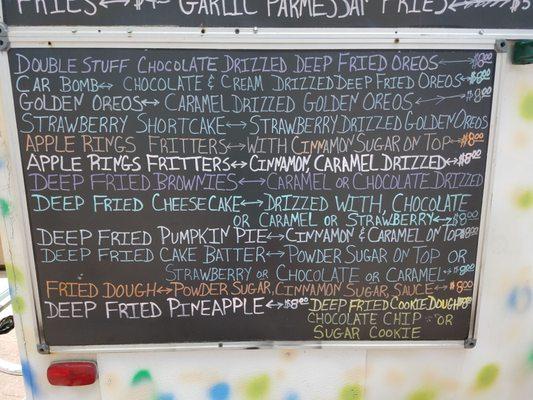 GARLIC PARMESSAR FRIES
DOUBLE STUFF CHOCOLATE DRIZZED DEEP FRIED OREOS ↔ $8.00
CAR BOMB ↔ CHOCOLATE & CREAM DRIZZED DEEP FRIED OREOS ↔ $8.00
GOLDEN OREOS ↔ CARAMEL DRIZZED GOLDEN OREOS ↔ $8.00
STRAWBERRY SHORTCAKE ↔ STRAWBERRY DRIZZLED GOLDEN OREOS
APPLE RINGS FRITTERS ↔ WITH CINNAMON SUGAR ON TOP ↔ $8.00
APPLE RINGS FRITTERS ↔ CINNAMON, CARAMEL DRIZZLED ↔ $8.00
DEEP FRIED BROWNIES ↔ CARAMEL OR CHOCOLATE DRIZZED
DEEP FRIED CHEESECAKE ↔ DRIZZED WITH, CHOCOLATE
OR CARAMEL OR STRAWBERRY ↔ $8.00
DEEP FRIED PUMPKIN PIE ↔ CINNAMON & CARAMEL ON TOP $8.00
DEEP FRIED CAKE BATTER ↔ POWDER SUGAR ON TOP OR
STRAWBERRY OR CHOCOLATE OR CARAMEL ↔ $8.00
FRIED DOUGH ↔ POWDER SUGAR, CINNAMON SUGAR, SAUCE ↔ $8.00
DEEP FRIED PINEAPPLE ↔ $8.00
DEEP FRIED COOKIE DOUGH $8.00
CHOCOLATE CHIP OR
SUGAR COOKIE